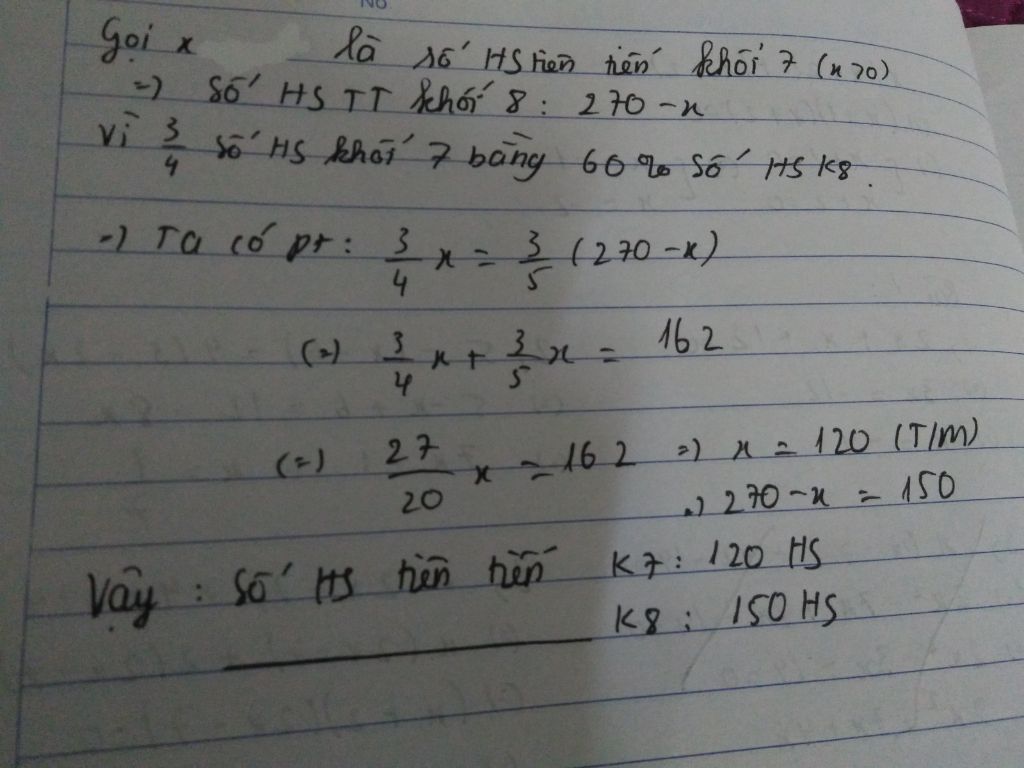 No
Gọi x là số HS tiên tiến khối 7 (x>0)
=) Số HS TT khối 8 : 270 - x
Vì 3/4 số HS khối 7 bằng 60% số HS K8.
=) Ta có pt : 3/4 x = 3/5 (270 - x)
(=) 3/4 x + 3/5 x = 162
(=) 27/20 x = 162 =) x = 120 (T/m)
=) 270 - x = 150
Vậy : Số HS tiên tiến K7 : 120 HS
K8 : 150 HS